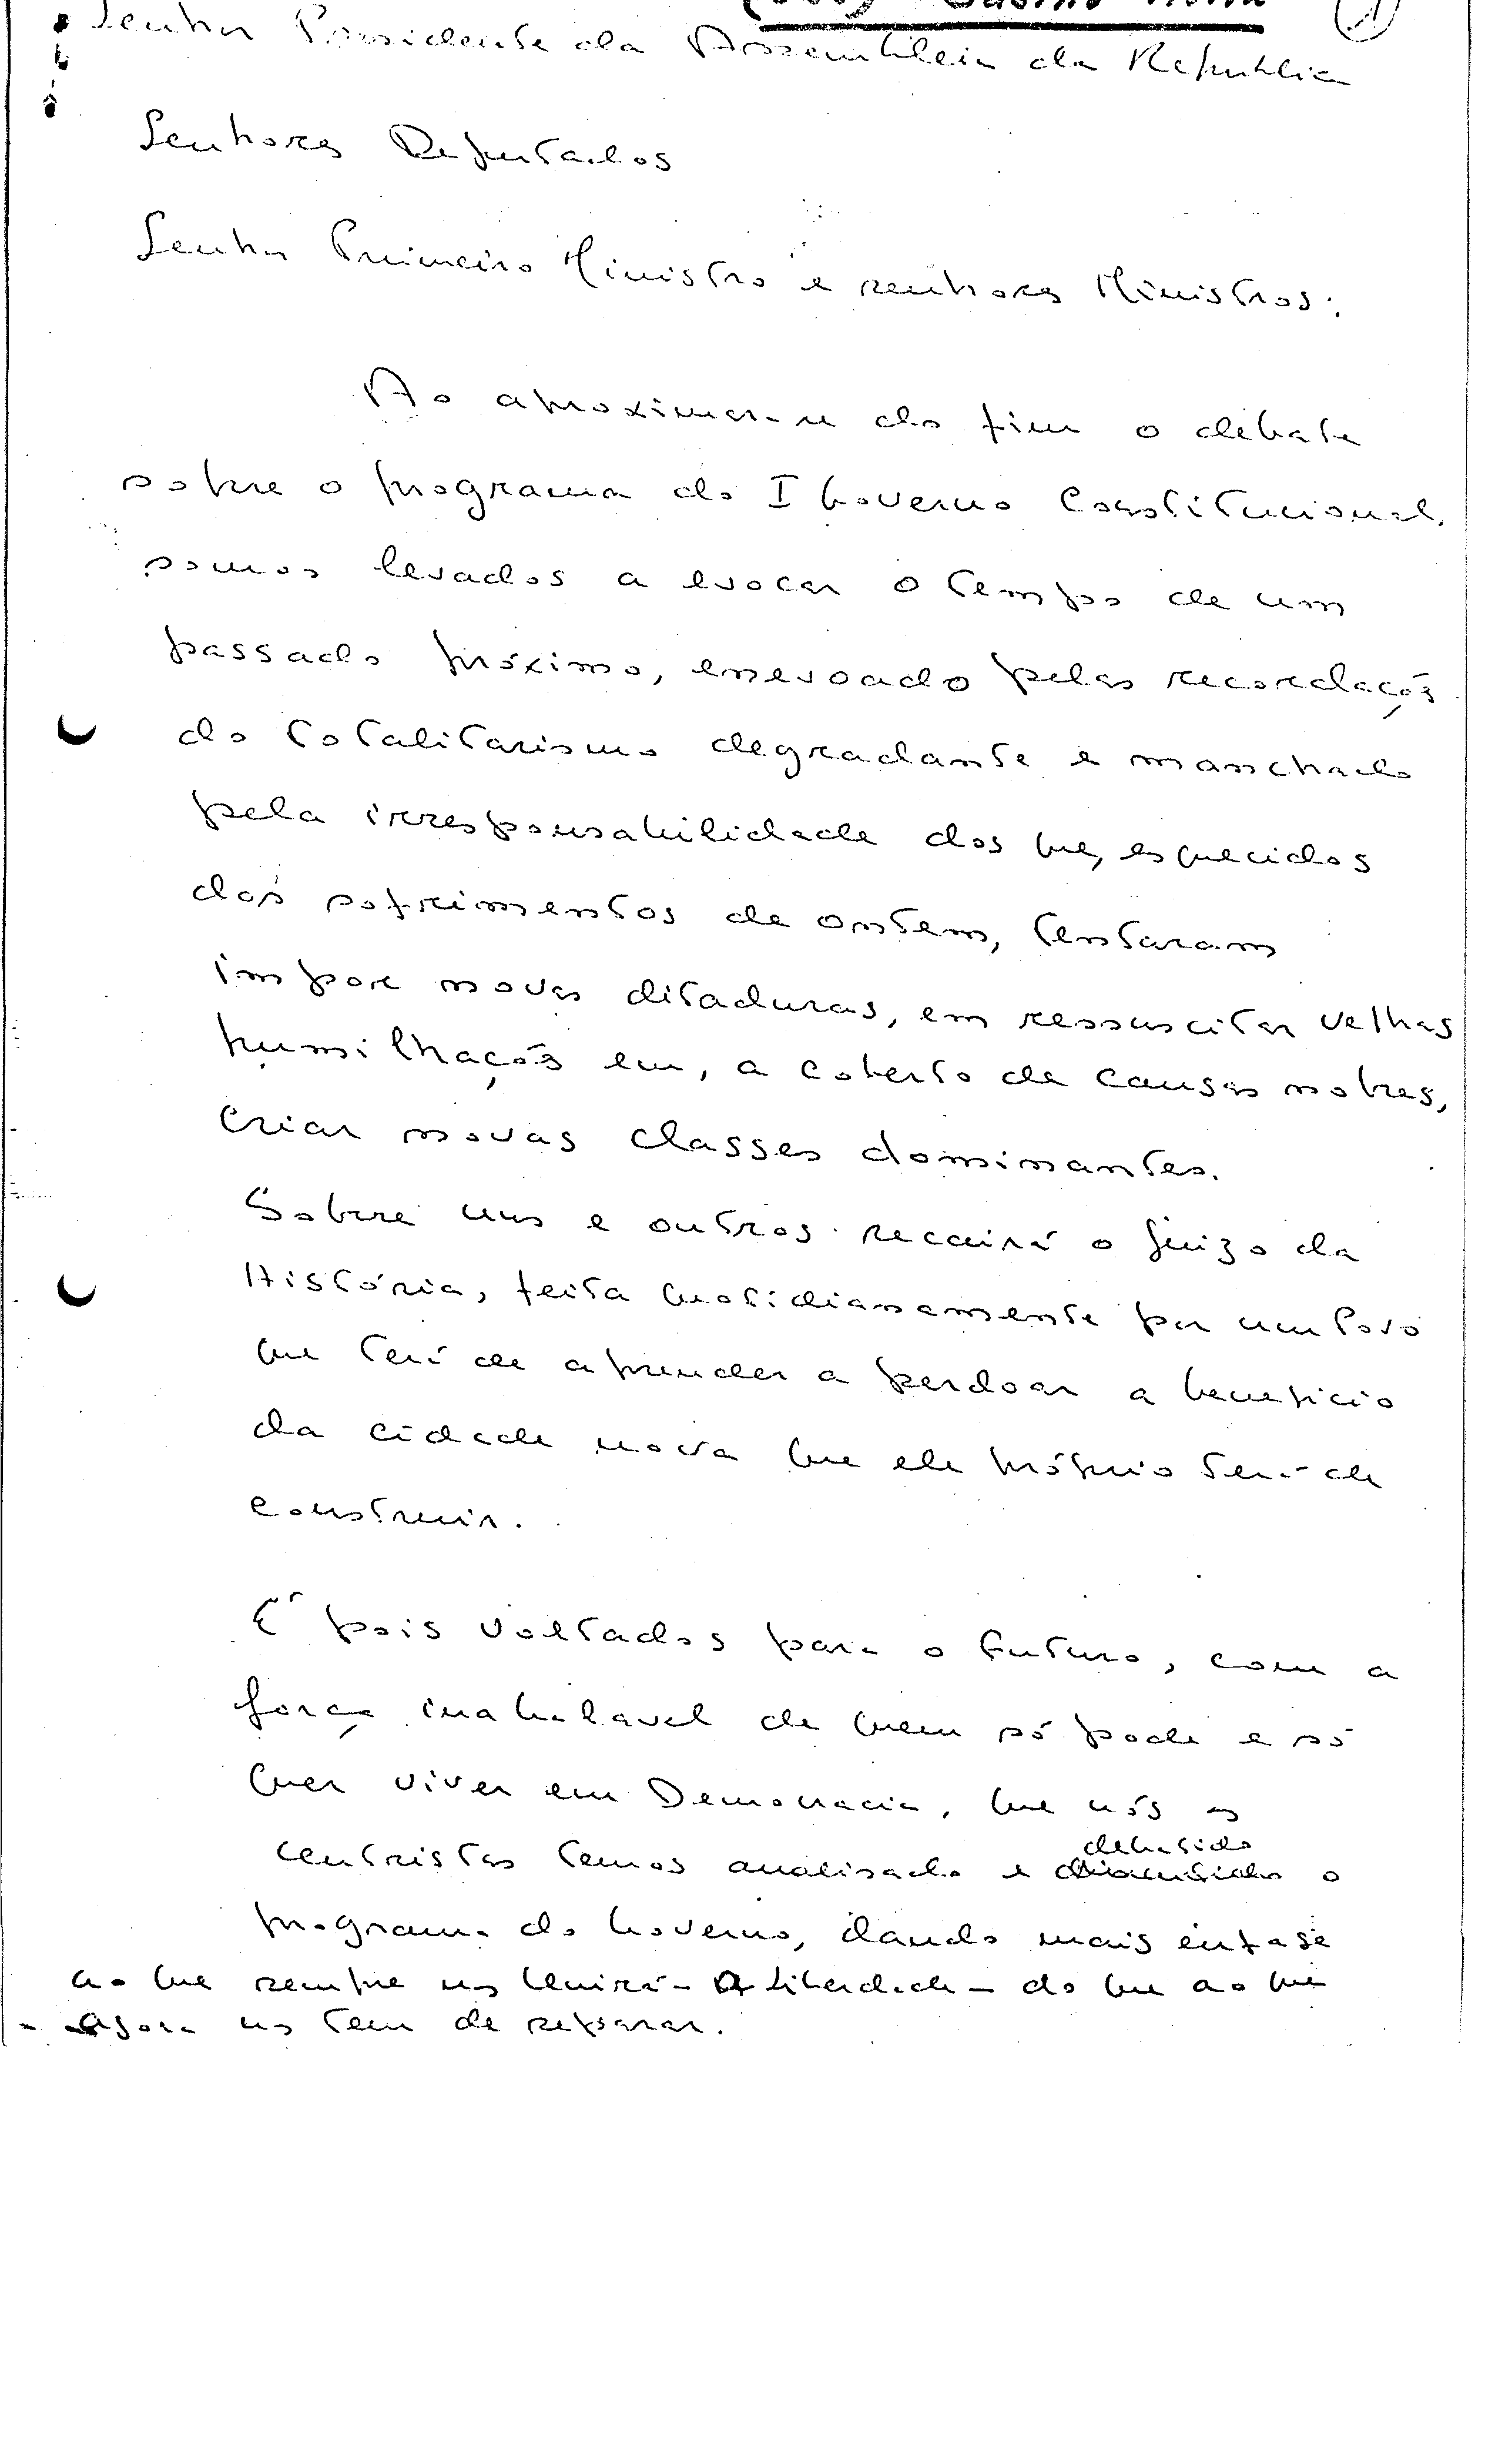 1
Senhor Presidente da Assembleia da Republica
Senhores Deputados
Senhor Primeiro Ministro e senhores Ministros:
Ao aproximar-se do fim o debate
sobre o programa do I Governo Constitucional,
somos levados a evocar o tempo de um
passado próximo, enevoado pelas recordações
do totalitarismo degradante e manchado
pela irresponsabilidade dos que, esquecidos
dos sofrimentos de ontem, tentaram
impor novas ditaduras, em ressuscitar velhas
humilhações em, a coberto de causas nobres,
criar novas classes dominantes.
Sobre uns e outros recairá o juizo da
História, feita quotidianamente por um Povo
que terá de aprender a perdoar a beneficio
da cidade nova que ele próprio terá de
construir.
É pois voltados para o futuro, com a
força inabalavel de quem só pode e só
quer viver em Democracia, que nós os
debatido
centristas temos analisado e discutido o
programa do Governo, dando mais enfase
ao que sempre nos unirá - a liberdade - do que ao que
agora nos tem de separar.